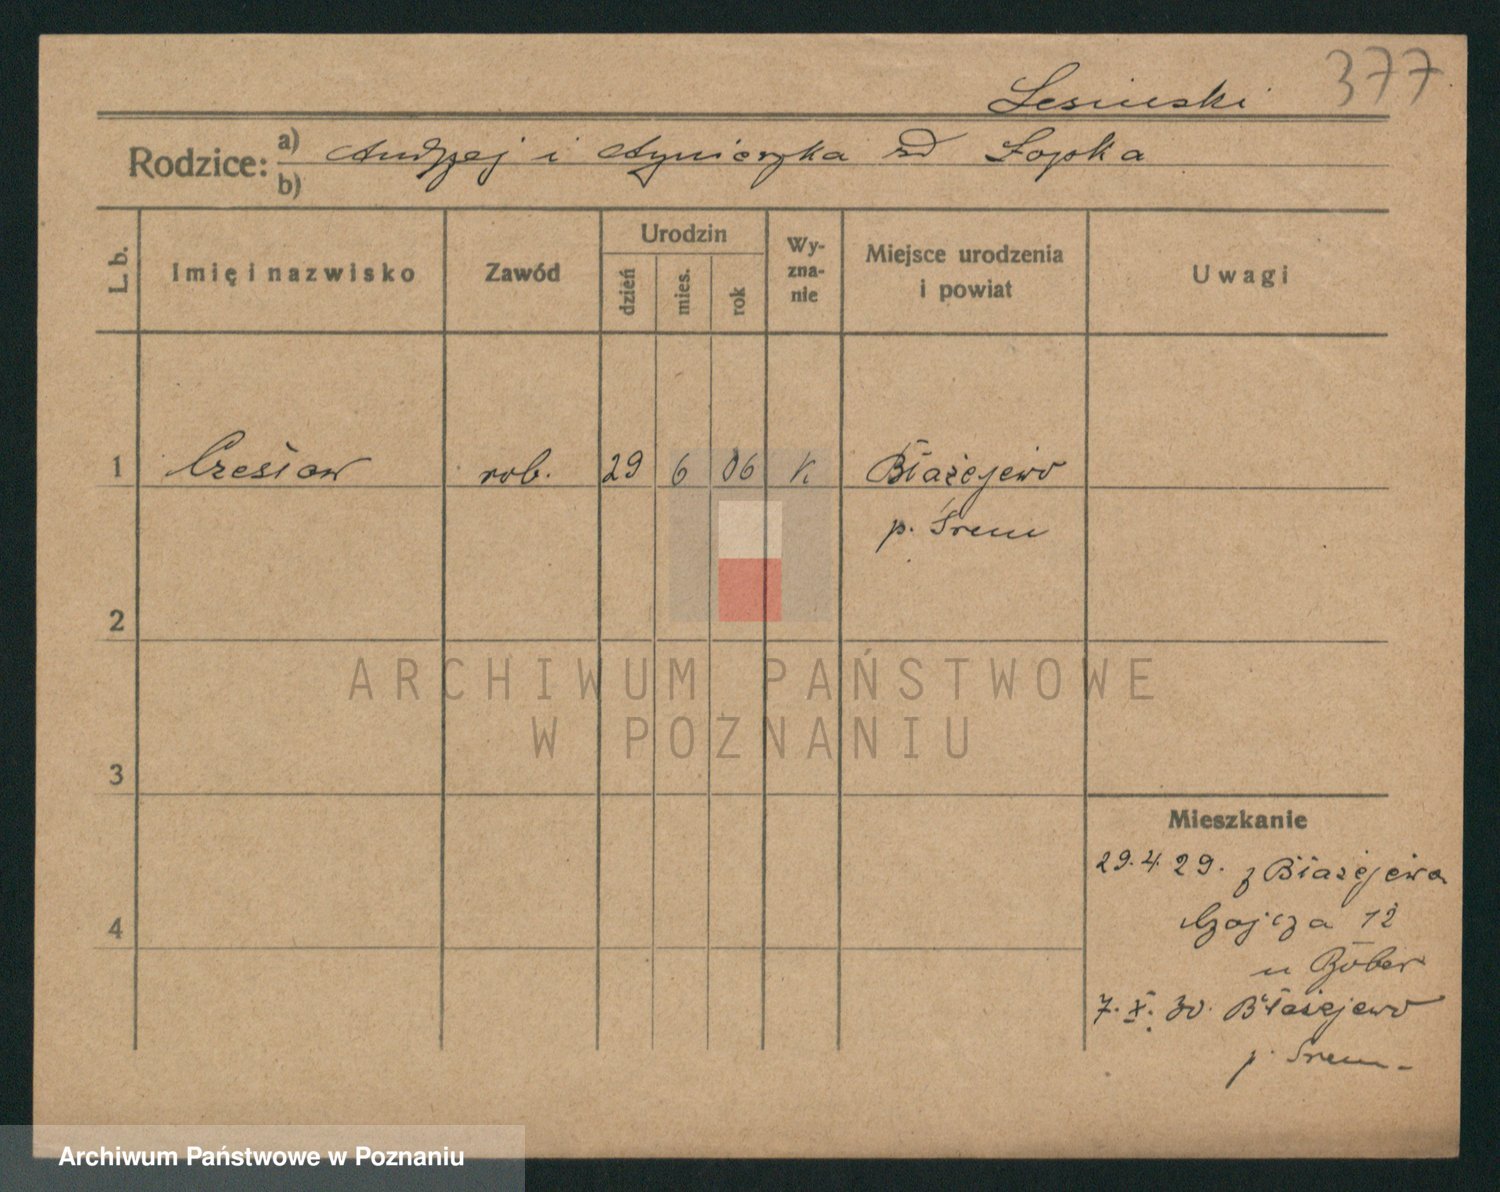 377
Lesinski
Rodzice: a) Andrzej i Agnieszka zd Łopka
b)
L. b.
Imię i nazwisko
Zawód
Urodzin
dzień
mies.
rok
Wy-
zna-
nie
Miejsce urodzenia
i powiat
Uwagi
1 Czesław rob. 29 6 06 K Błażejewo
p. Śrem
2
3
4
Mieszkanie
29.4 29. z Błażejewa
12
u
7. X. 30. Błażejewo
p. Śrem
ARCHIWUM PAŃSTWOWE
W POZNANIU
Archiwum Państwowe w Poznaniu